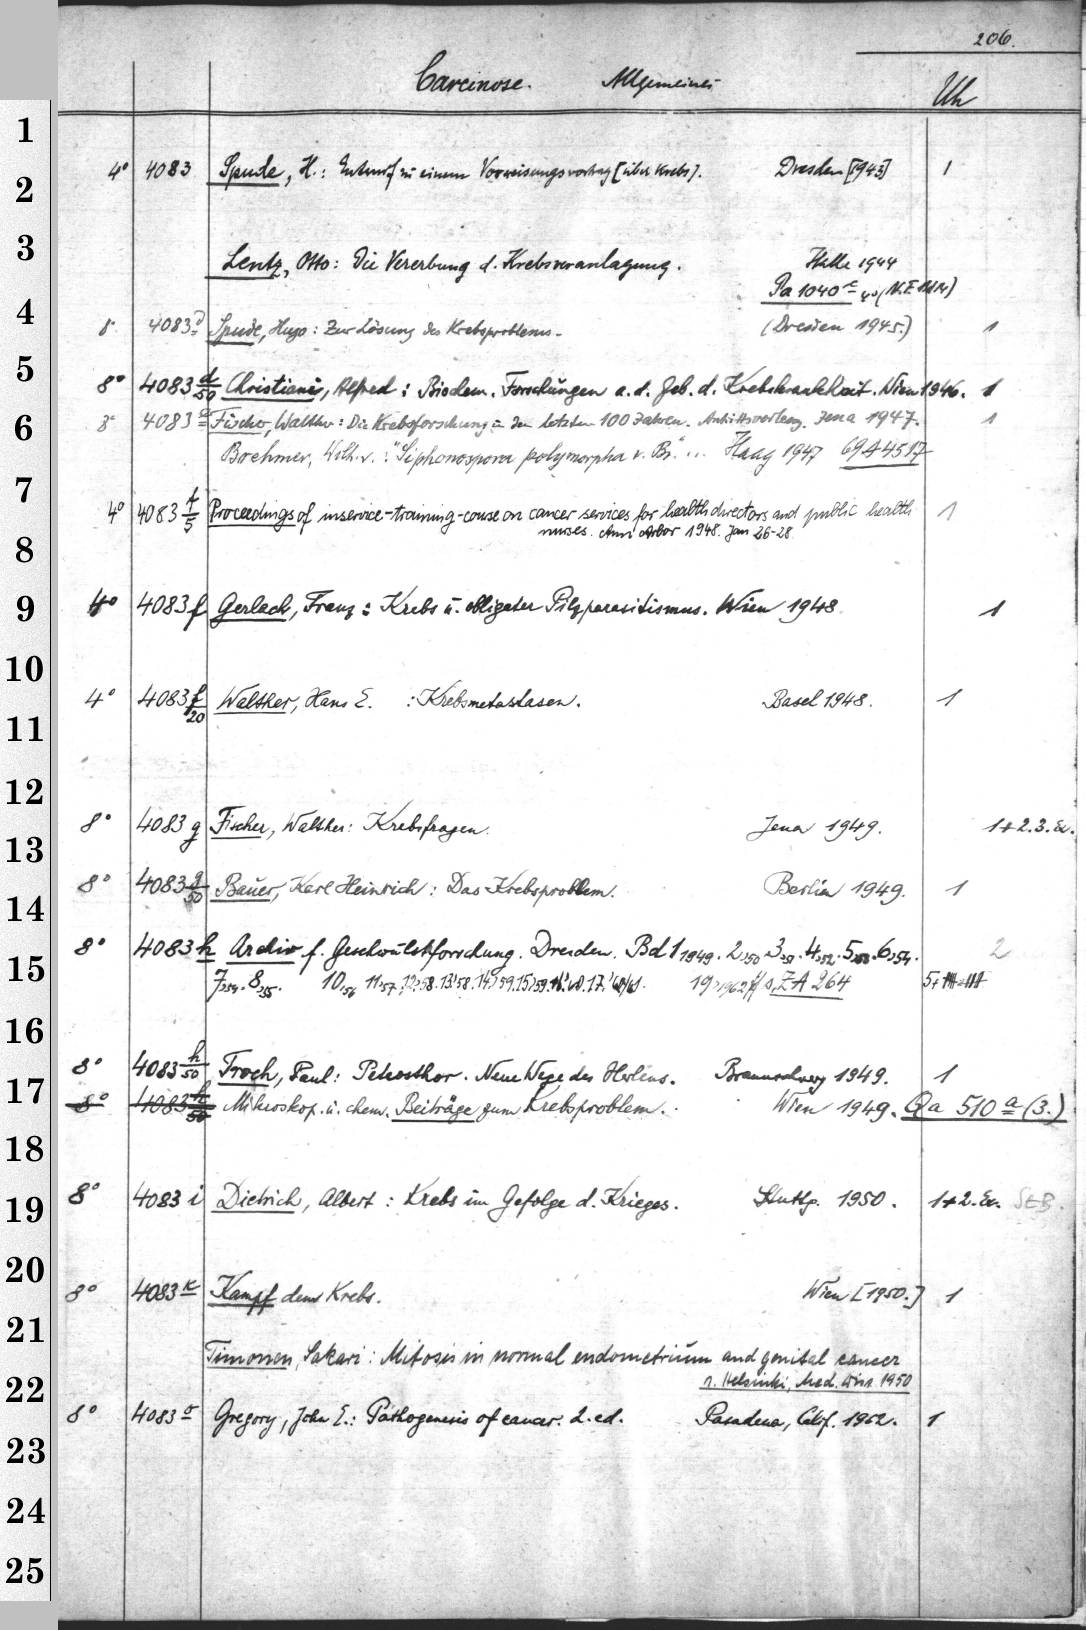 206.
Carcinose. Allgemeines
Uh
1
4° 4083 Spude, H.: Entwurf zu einem Vorweisungsvortrag [über Krebs]. Dresden [1943] 1
2
3
Lentz, Otto: Die Vererbung d. Krebsveranlagung. Halle 1944
Pa 1040
4
8° 4083 Spude, Hugo: Zur Lösung des Krebsproblems. (Dresden 1945.) 1
5
8° 4083 d/50 Christiani, Alfred: Biochem. Forschungen a. d. Geb. d. Krebskrankheit. Wien 1946. 1
6
8° 4083 e Fischer, Walther: Die Krebsforschung in den letzten 100 Jahren. Antrittsvorlesg. Jena 1947. 1
Brehmer, Wilh. v.: "Siphonospora polymorpha v. Br." ... Haag 1947 69A4517
7
4° 4083 f/5 Proceedings of inservice-training-couse on cancer services for health directors and public health 1
nurses. Ann Arbor 1948. Jan 26-28
8
9
4° 4083 f Gerlach, Franz: Krebs u. obligater Pilzparasitismus. Wien 1948. 1
10
4° 4083 f/20 Walther, Hans E. : Krebsmetastasen. Basel 1948. 1
11
12
8° 4083 g Fischer, Walther: Krebsfragen. Jena 1949. 1+2.3.Ex.
13
8° 4083 g/50 Bauer, Karl Heinrich: Das Krebsproblem. Berlin 1949. 1
14
8° 4083 h Archiv f. Geschwulstforschung. Dresden. Bd 1 1949. 2,50. 3,51. 4,52. 5,53. 6,54. 2
15
7,54. 8,55. 10,56 11,57. 12,58. 13,58. 14,59. 15,59. 17, 60/61. 19, 1962 ff s. ZA 264
16
8° 4083 h/50 Troch, Paul: Petrosthor. Neue Wege des Heilens. Braunschweig 1949. 1
17
8° 4083 h/50 Mikroskop. u. chem. Beiträge zum Krebsproblem. Wien 1949. Qa 510 a (3.)
18
8° 4083 i Dietrich, Albert: Krebs im Gefolge d. Krieges. Stuttg. 1950. 1+2.Ex. StB.
19
20
8° 4083 k Kampf dem Krebs. Wien [1950.] 1
21
Timonen, Sakari: Mitosis in normal endometrium and genital cancer
22
s. Helsinki, Med. Diss. 1950
8° 4083 o Gregory, John E.: Pathogenesis of cancer. 2. ed. Pasadena, Calif. 1952. 1
23
24
25